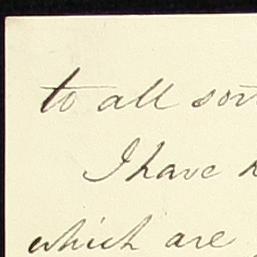 to all
I have
which are